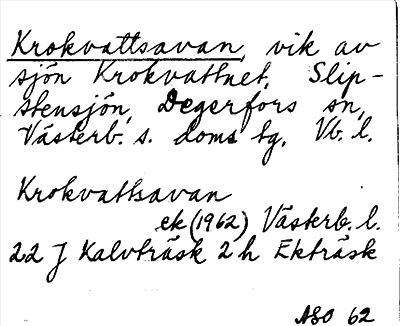 Krokvattsavan, vik av
sjön Krokvattnet, Slip-
stensjön, Degerfors sn,
Västerb. s. doms tg, Vb. l.
Krokvattsavan
ek (1962) Västerb. l.
22 J Kalvträsk 2 h Ekträsk
ASO 62